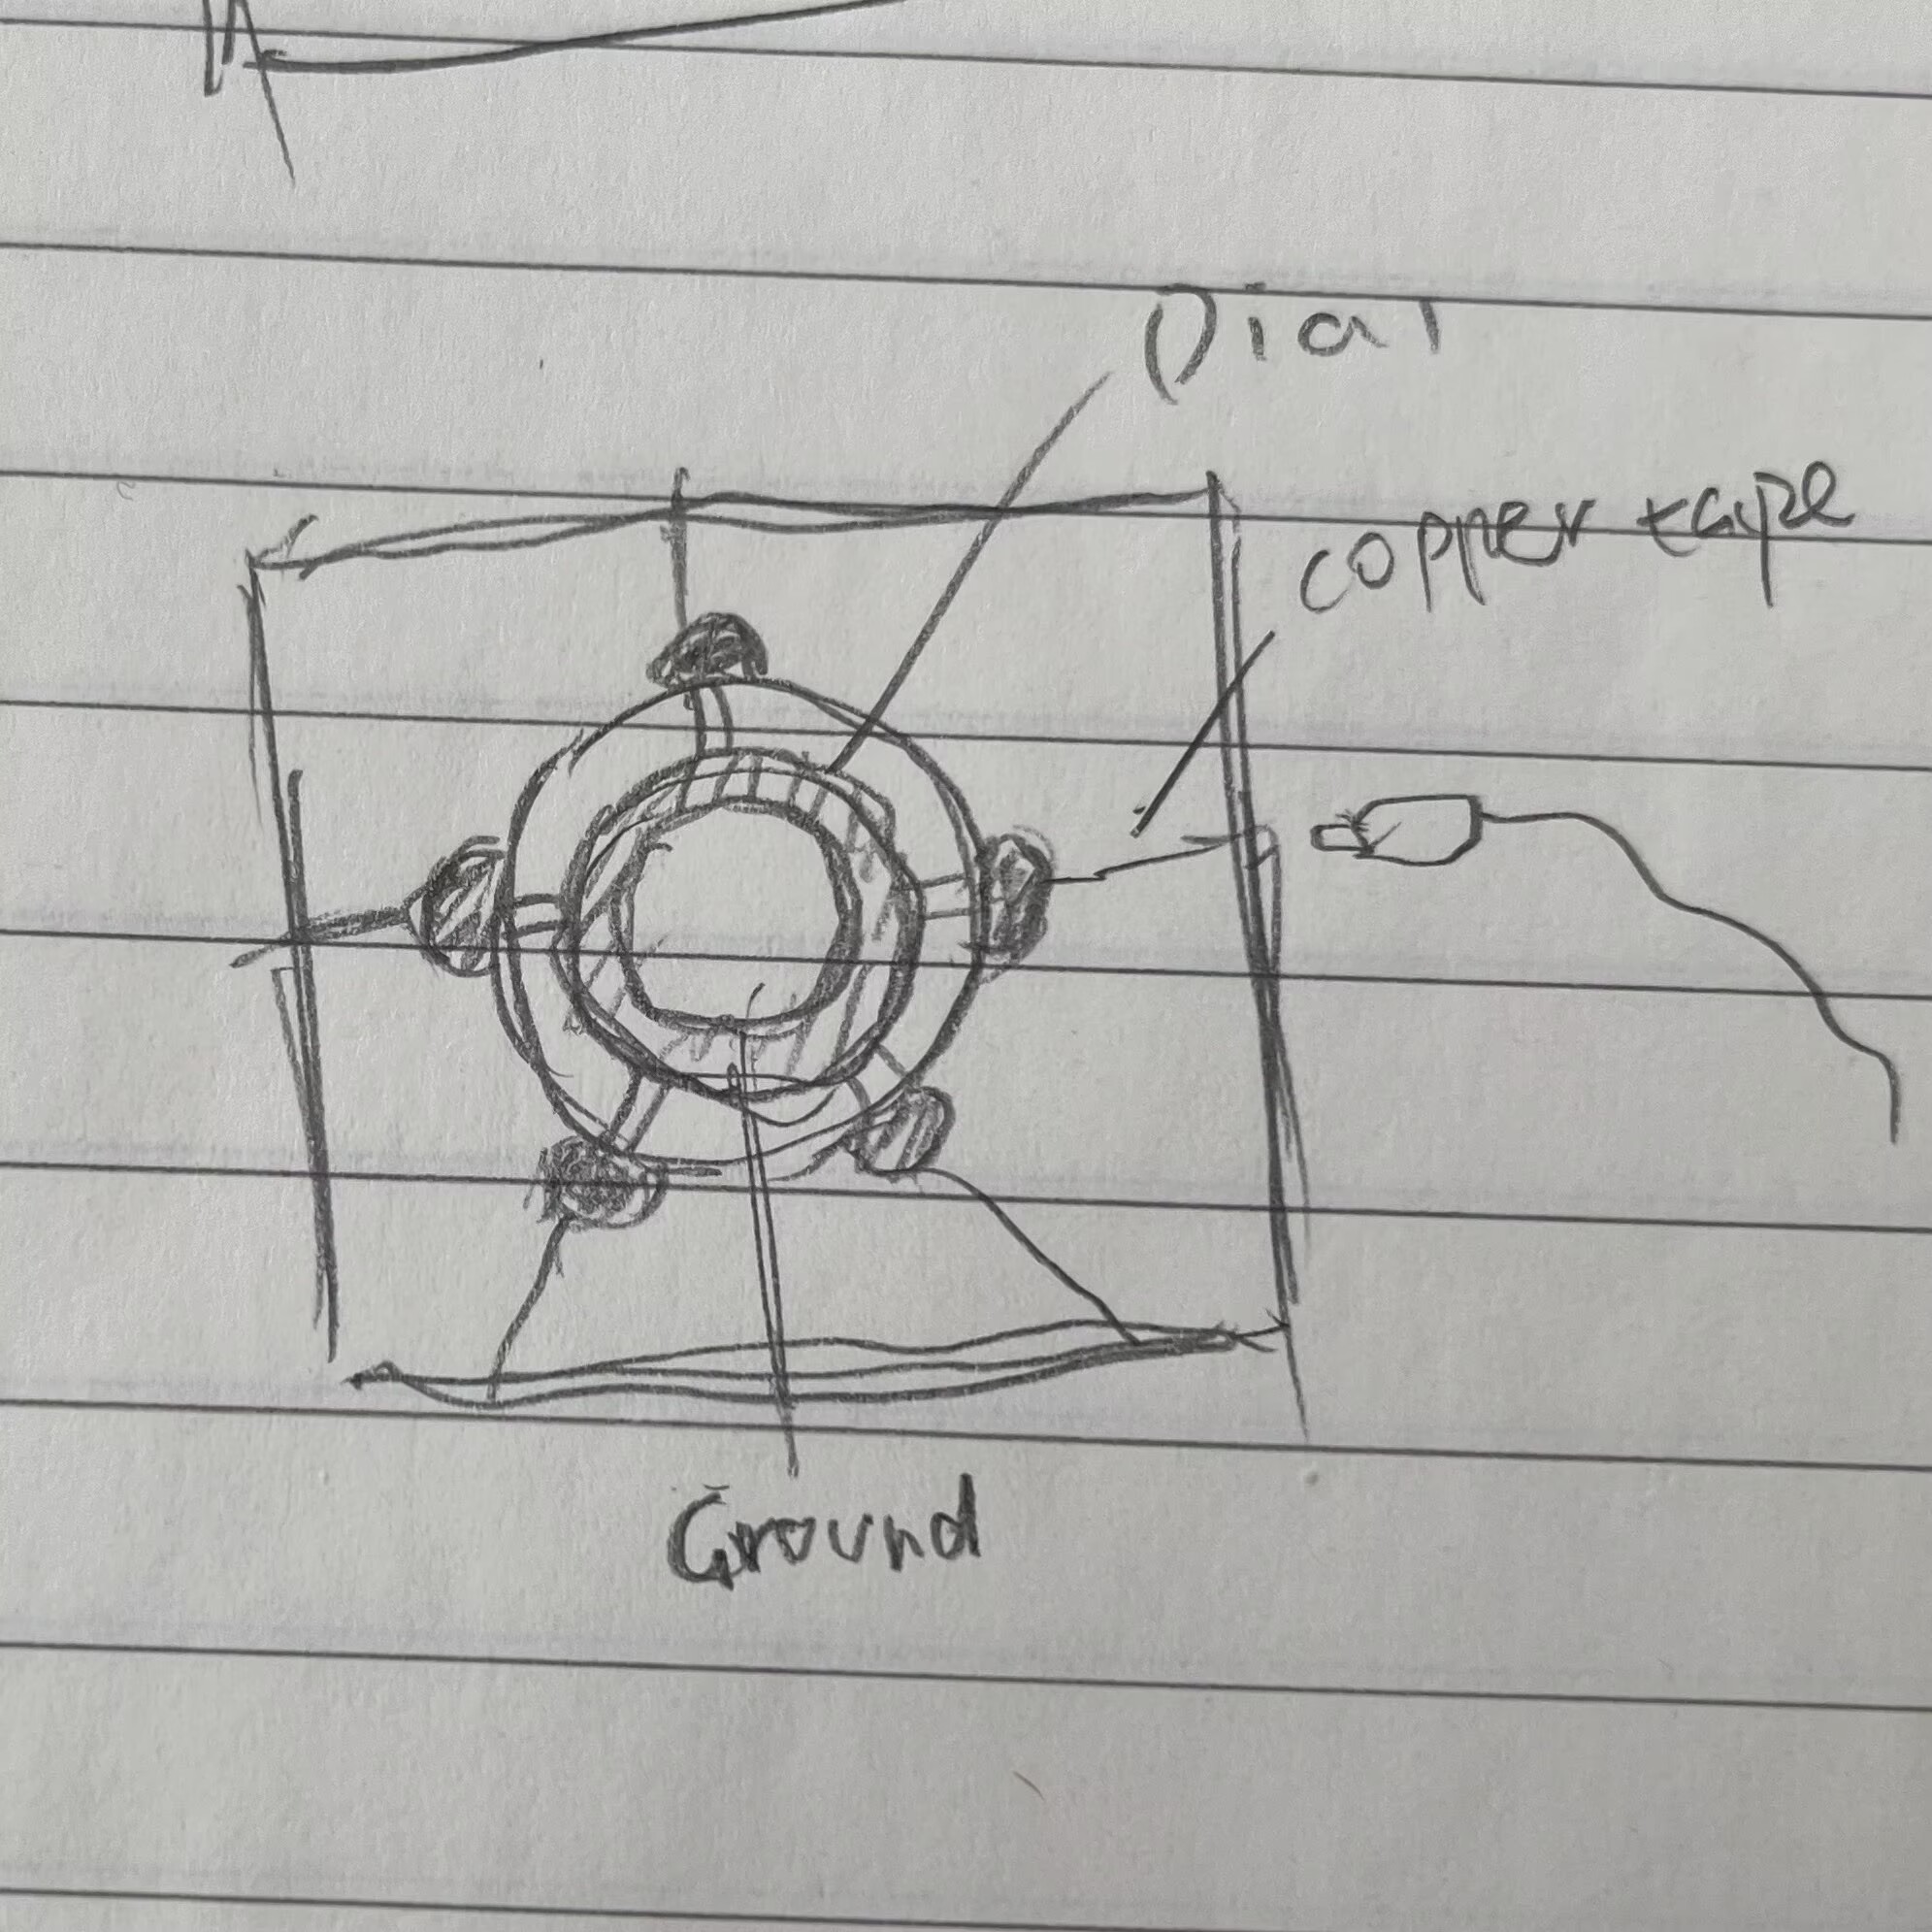 Dial
copper tape
Ground